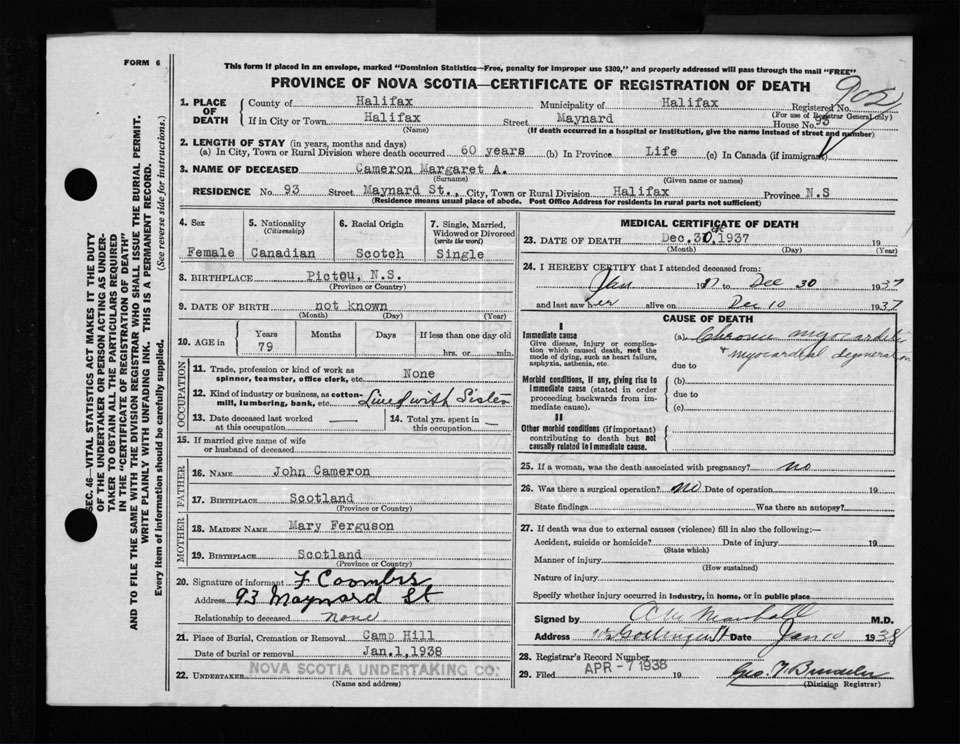 FORM 6
This form if placed in an envelope, marked "Dominion Statistics—Free, penalty for improper use $300," and properly addressed will pass through the mail "FREE"
PROVINCE OF NOVA SCOTIA—CERTIFICATE OF REGISTRATION OF DEATH
902
1. PLACE OF DEATH County of Halifax Municipality of Halifax Registered No.
(For use of Registrar General only)
If in City or Town Halifax Street Maynard House No. 93
(Name) (If death occurred in a hospital or institution, give the name instead of street and number)
2. LENGTH OF STAY (in years, months and days)
(a) In City, Town or Rural Division where death occurred 60 years (b) In Province Life (c) In Canada (if immigrant)
3. NAME OF DECEASED Cameron Margaret A.
(Surname) (Given name or names)
RESIDENCE No. 93 Street Maynard St., City, Town or Rural Division Halifax Province N.S
(Residence means usual place of abode. Post Office Address for residents in rural parts not sufficient)
4. Sex 5. Nationality (Citizenship) 6. Racial Origin 7. Single, Married, Widowed or Divorced (write the word)
Female Canadian Scotch Single
8. BIRTHPLACE Pictou, N.S.
(Province or Country)
9. DATE OF BIRTH not known
(Month) (Day) (Year)
10. AGE in Years Months Days If less than one day old
79 hrs. or min.
OCCUPATION
11. Trade, profession or kind of work as spinner, teamster, office clerk, etc. None
12. Kind of industry or business, as cotton-mill, lumbering, bank, etc. Lived with Sister
13. Date deceased last worked at this occupation —
14. Total yrs. spent in this occupation —
15. If married give name of wife or husband of deceased
FATHER
16. NAME John Cameron
17. BIRTHPLACE Scotland
(Province or Country)
MOTHER
18. MAIDEN NAME Mary Ferguson
19. BIRTHPLACE Scotland
(Province or Country)
20. Signature of informant F Coombs
Address 93 Maynard St
Relationship to deceased none
21. Place of Burial, Cremation or Removal Camp Hill
Date of burial or removal Jan.1,1938
22. UNDERTAKER NOVA SCOTIA UNDERTAKING CO.
(Name and address)
MEDICAL CERTIFICATE OF DEATH
23. DATE OF DEATH Dec.30,1937 19
(Month) (Day) (Year)
24. I HEREBY CERTIFY that I attended deceased from:
Jan 19 to Dec 30 1937
and last saw her alive on Dec 10 1937
CAUSE OF DEATH
I
Immediate cause
Give disease, injury or complication which caused death, not the mode of dying, such as heart failure, asphyxia, asthenia, etc.
(a) Chronic myocarditis
+ myocardial degeneration
due to
Morbid conditions, if any, giving rise to immediate cause (stated in order proceeding backwards from immediate cause).
(b)
due to
(c)
II
Other morbid conditions (if important) contributing to death but not causally related to immediate cause.
25. If a woman, was the death associated with pregnancy? no
26. Was there a surgical operation? no Date of operation 19
State findings Was there an autopsy?
27. If death was due to external causes (violence) fill in also the following:—
Accident, suicide or homicide? Date of injury 19
(State which)
Manner of injury
(How sustained)
Nature of injury
Specify whether injury occurred in industry, in home, or in public place
Signed by Marshall M.D.
Address Date Jan 10 1938
28. Registrar's Record Number
29. Filed APR -7 1938 19
(Division Registrar)
SEC. 46—VITAL STATISTICS ACT MAKES IT THE DUTY
OF THE UNDERTAKER OR PERSON ACTING AS UNDER-
TAKER TO OBTAIN ALL THE PARTICULARS REQUIRED
IN THE "CERTIFICATE OF REGISTRATION OF DEATH"
AND TO FILE THE SAME WITH THE DIVISION REGISTRAR WHO SHALL ISSUE THE BURIAL PERMIT.
WRITE PLAINLY WITH UNFADING INK. THIS IS A PERMANENT RECORD.
Every item of information should be carefully supplied. (See reverse side for instructions.)